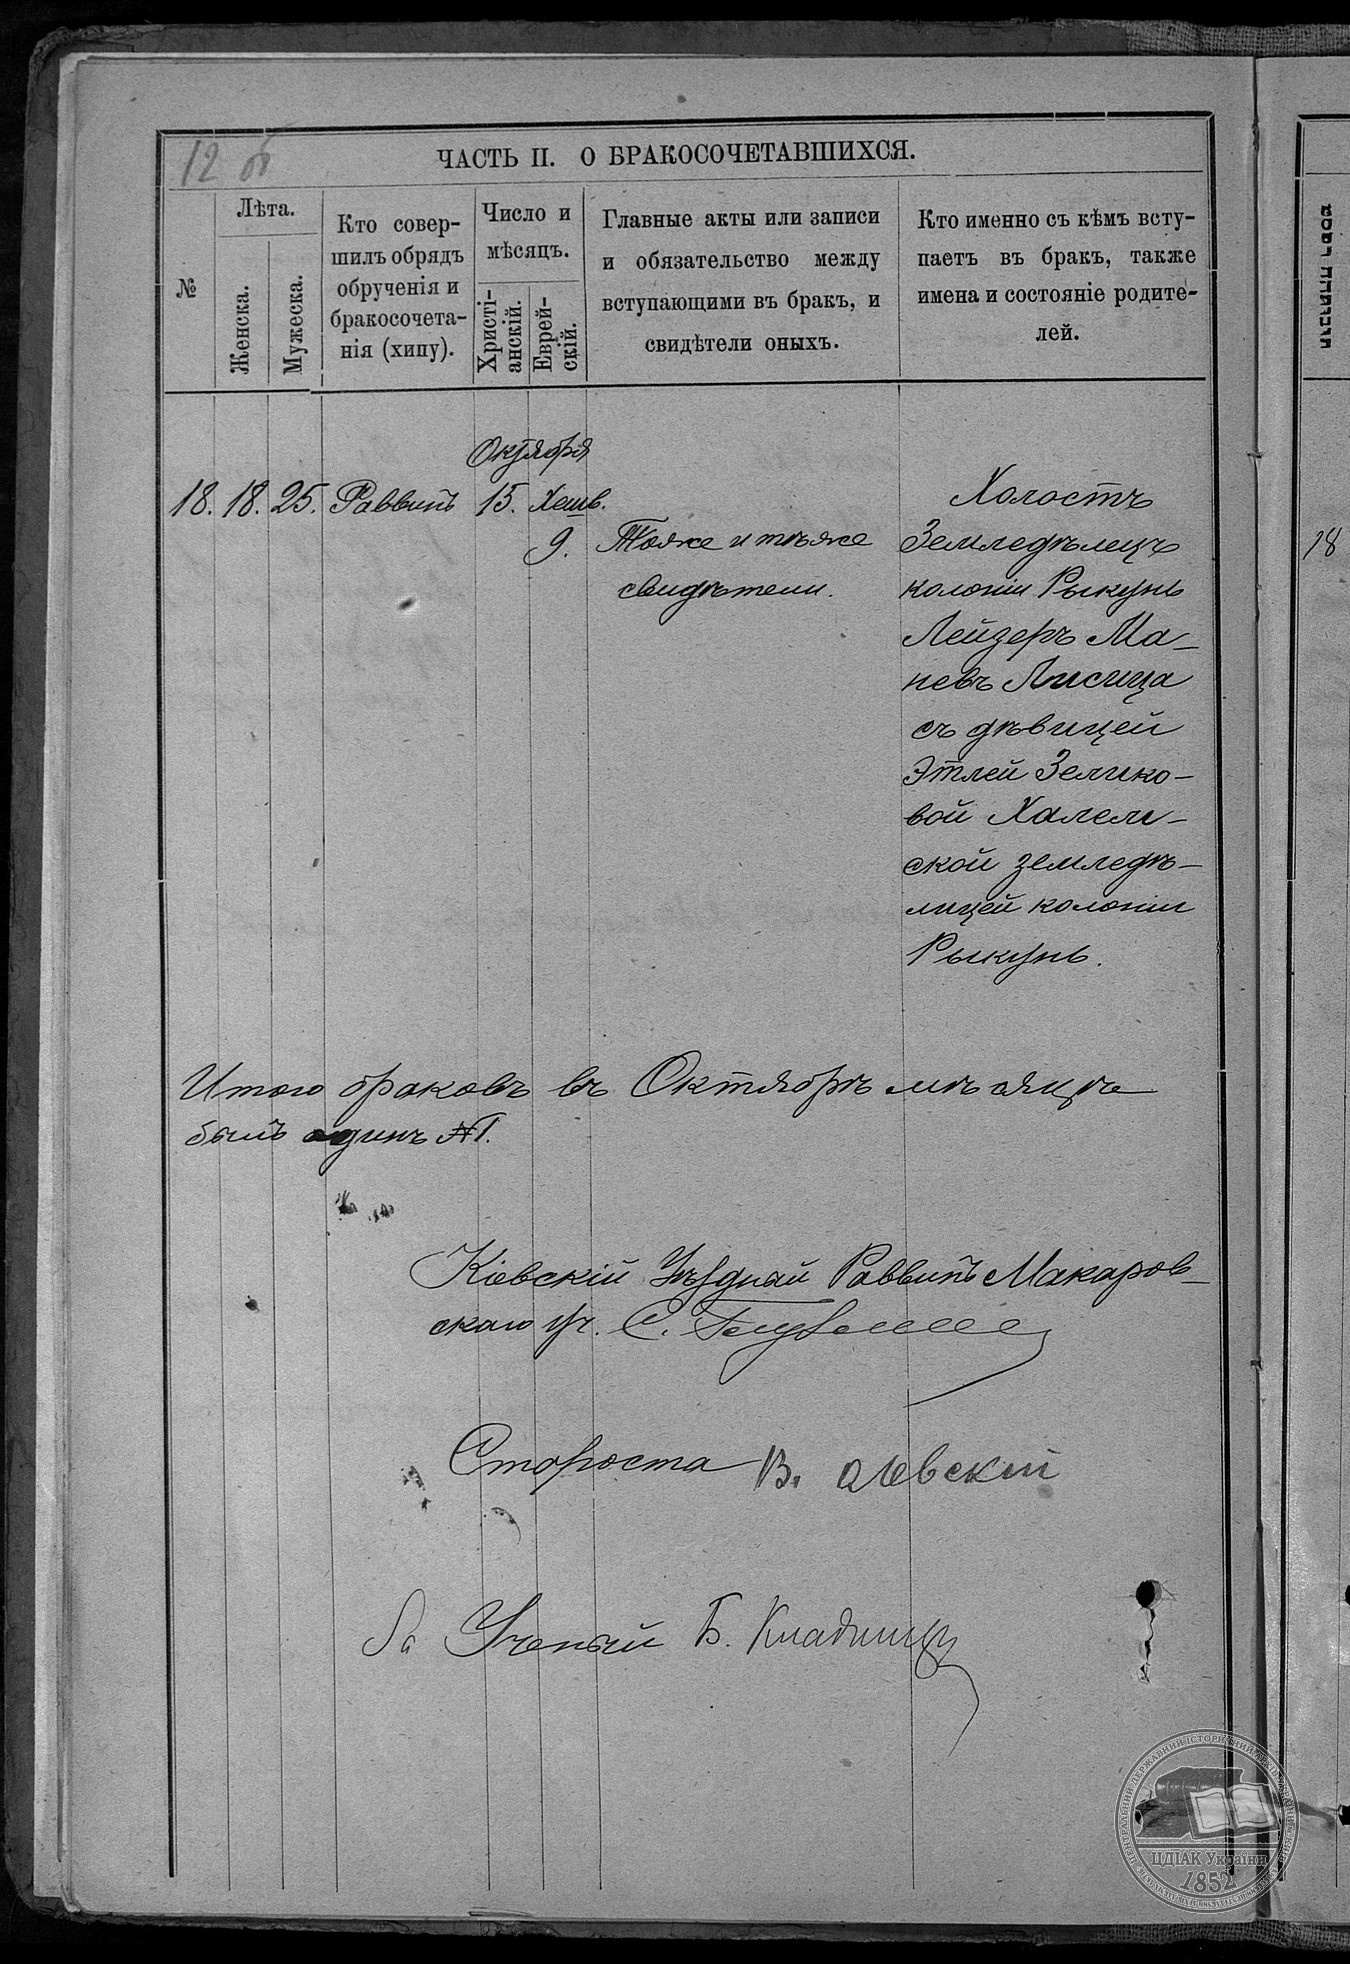 12 об
ЧАСТЬ II. О БРАКОСОЧЕТАВШИХСЯ.
№
Лѣта.
Женска.
Мужеска.
Кто совер-
шилъ обрядъ
обрученія и
бракосочета-
нія (хипу).
Число и
мѣсяцъ.
Христі-
анскій.
Еврей-
скій.
Главные акты или записи
и обязательство между
вступающими въ бракъ, и
свидѣтели оныхъ.
Кто именно съ кѣмъ всту-
паетъ въ бракъ, также
имена и состояніе родите-
лей.
Октября
18. 18. 25. Раввинъ 15. Хешв.
9.
Тоже и тѣже
свидѣтели.
Холостъ
Земледѣлецъ
колоніи Рыкунь
Лейзеръ Ма-
невъ Лисица
съ дѣвицей
Этлей Зелико-
вой Халем-
ской земледѣ-
лицей колоніи
Рыкунь.
18
Итого браковъ въ Октябрѣ мѣсяцѣ
былъ одинъ №1.
Кіевскій Уѣздный Раввинъ Макаров-
скаго уч. С.
Староста В.
За Ученый Б.
ЦДІАК України
1852